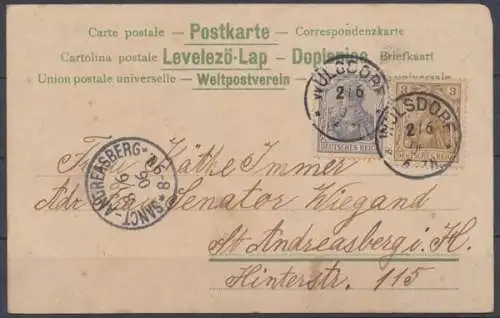 Carte postale – Postkarte – Correspondenzkarte
Cartolina postale Levelező-Lap – Briefkaart
Union postale universelle – Weltpostverein –
WULSDORF
2 6
DEUTSCHES REICH
3
WULSDORF
2/6
DEUTSCHES REICH
SANCT-ANDREASBERG
Käthe Immer
Senator Wiegand
St. Andreasberg i. H.
Hinterstr. 115